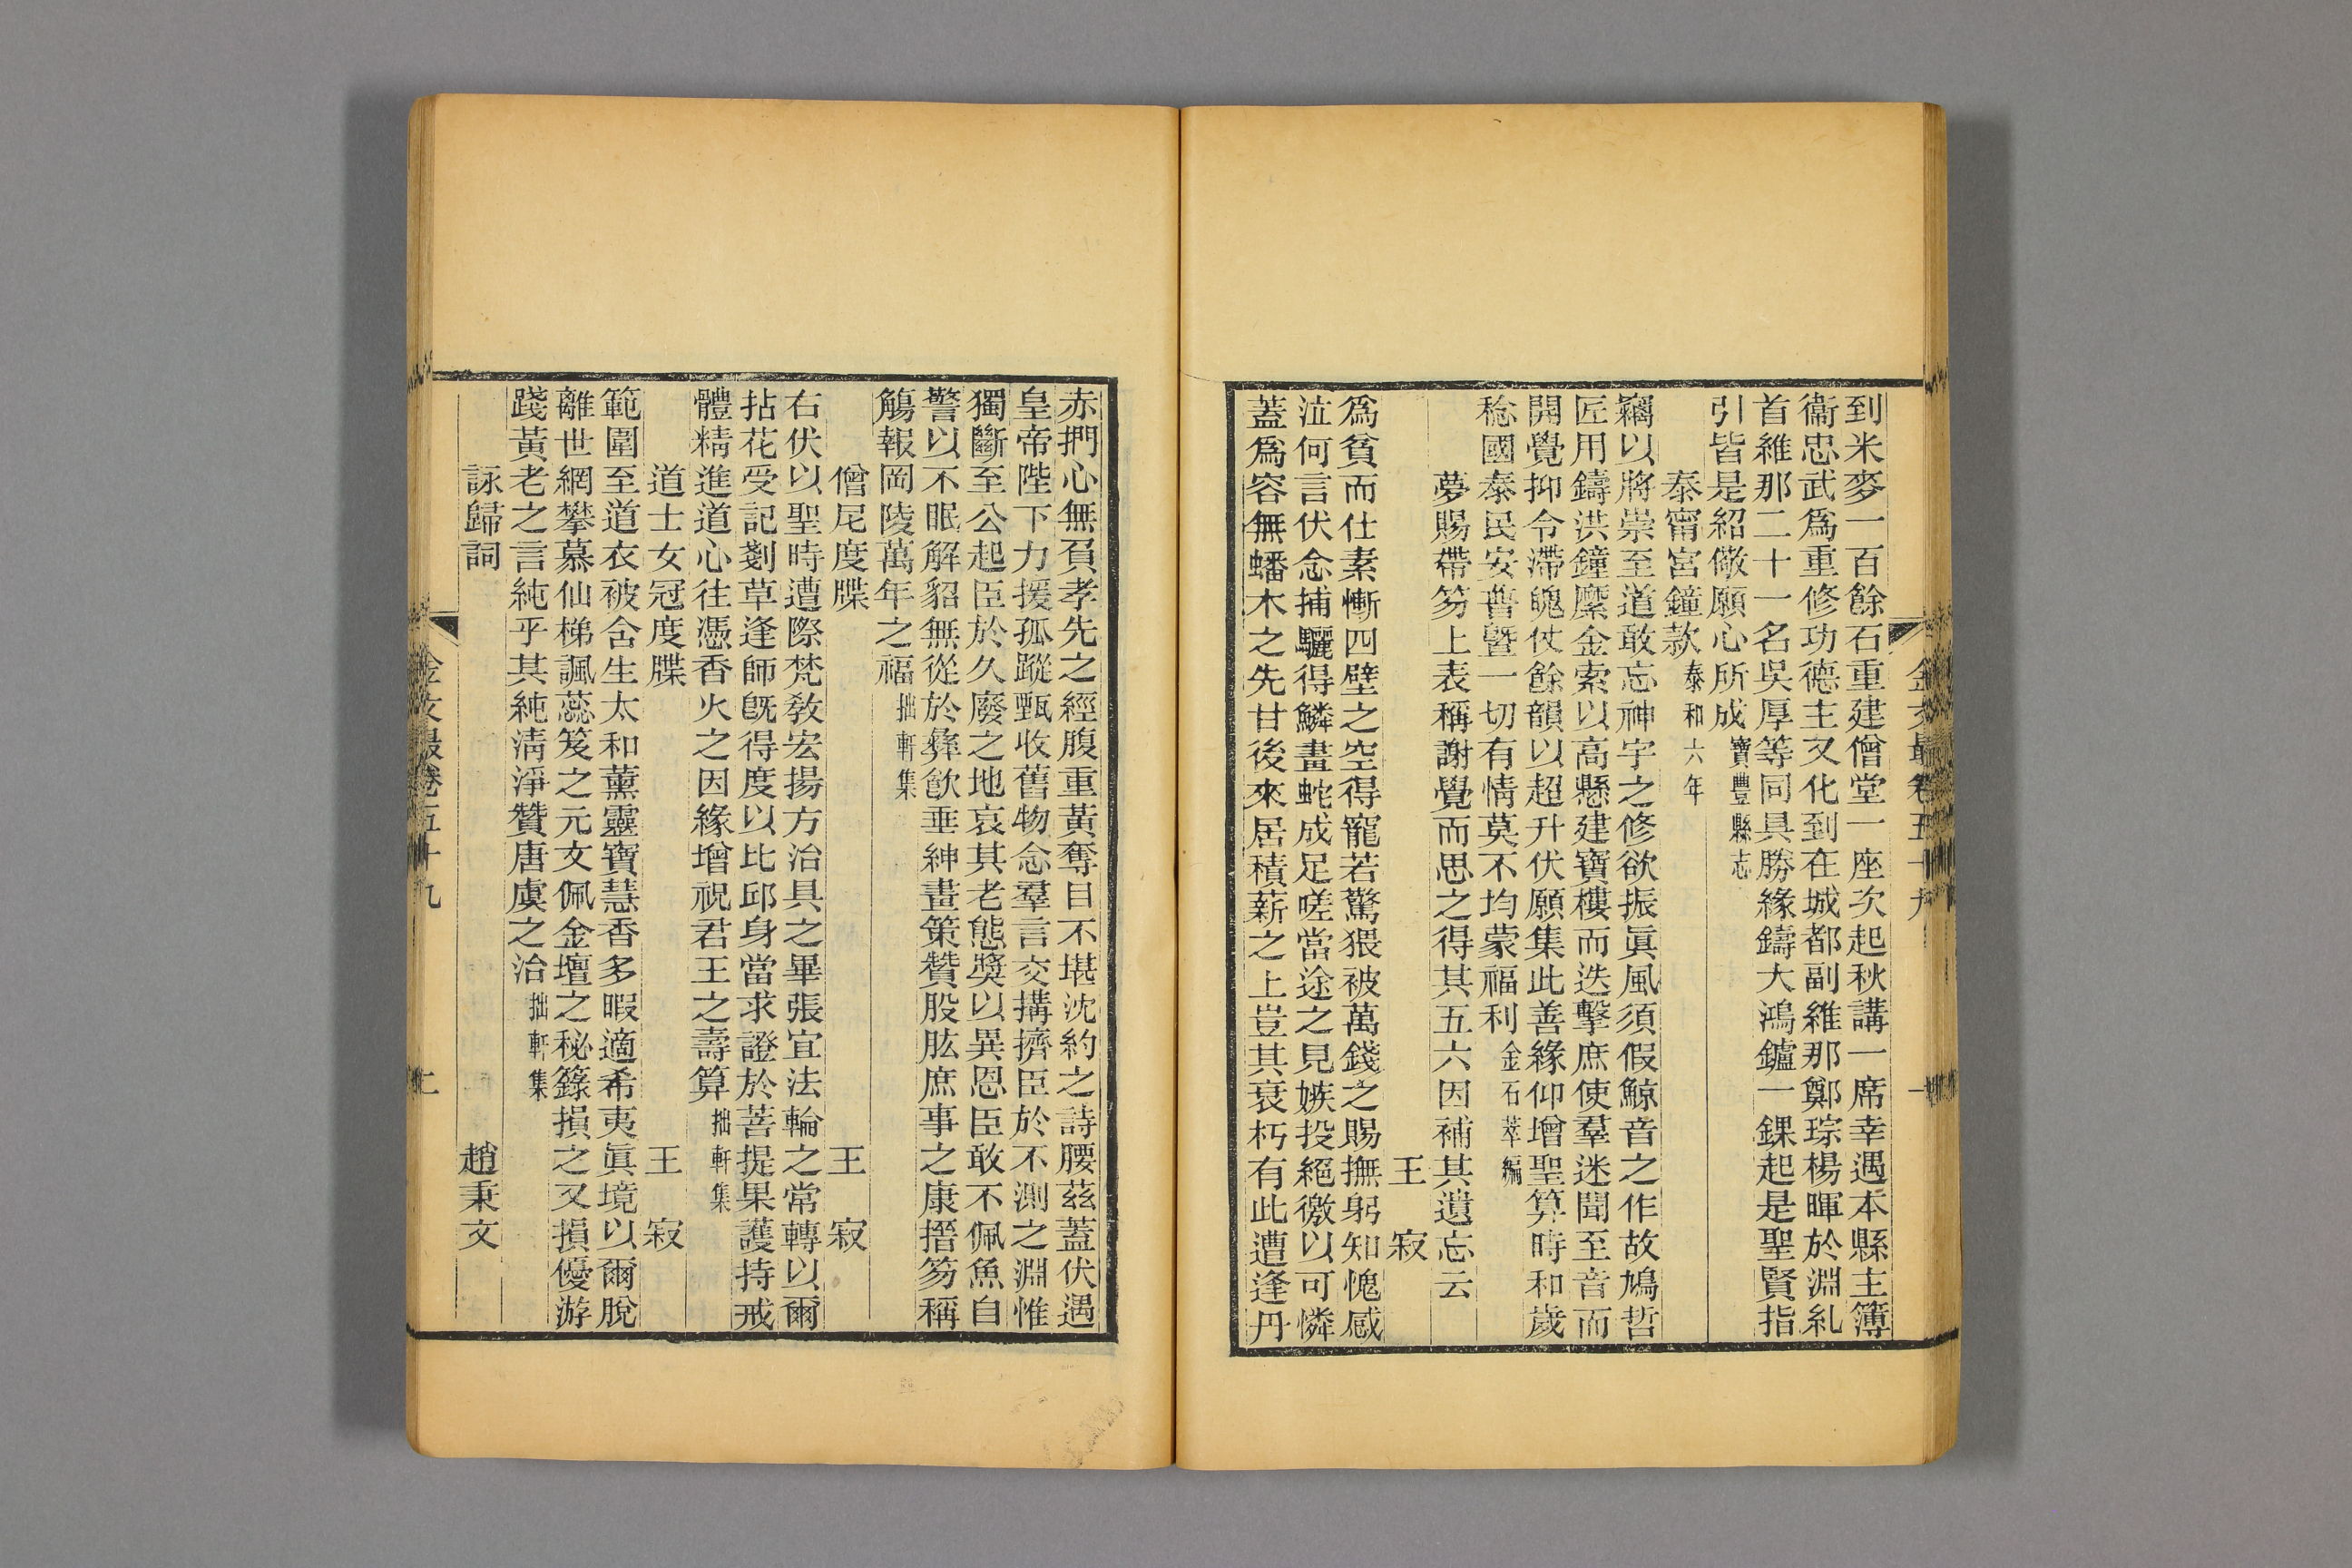 到米麥一百餘石重建僧堂一座次起秋講一席幸遇本縣主簿
衞忠武爲重修功德主又化到在城都副維那鄭琮楊暉於淵糺
首維那二十一名吳厚等同具勝緣鑄大鴻鑪一錁起是聖賢指
引皆是紹儆願心所成寶豐縣志
泰甯宮鐘款泰和六年
竊以將崇至道敢忘神宇之修欲振眞風須假鯨音之作故鳩哲
匠用鑄洪鐘縻金索以高懸建寶樓而迭擊庶使羣迷聞至音而
開覺抑令滯魄仗餘韻以超升伏願集此善緣仰增聖算時和歲
稔國泰民安普曁一切有情莫不均蒙福利金石萃編
夢賜帶笏上表稱謝覺而思之得其五六因補其遺忘云
王寂
爲貧而仕素慚四壁之空得寵若驚猥被萬錢之賜撫躬知愧感
泣何言伏念捕驪得鱗畫蛇成足嗟當途之見嫉投絕徼以可憐
蓋爲容無蟠木之先甘後來居積薪之上豈其衰朽有此遭逢丹
金文最卷五十九
赤捫心無負孝先之經腹重黃奪目不堪沈約之詩腰茲蓋伏遇
皇帝陛下力援孤蹤甄收舊物念羣言交搆擠臣於不測之淵惟
獨斷至公起臣於久廢之地哀其老態奬以異恩臣敢不佩魚自
警以不眠解貂無從於彝飮垂紳畫策贊股肱庶事之康搢笏稱
觴報岡陵萬年之福拙軒集
僧尼度牒 王寂
右伏以聖時遭際梵敎宏揚方治具之畢張宜法輪之常轉以爾
拈花受記剗草逢師旣得度以比邱身當求證於菩提果護持戒
體精進道心往憑香火之因緣增祝君王之壽算拙軒集
道士女冠度牒 王寂
範圍至道衣被含生太和薰靈寶慧香多暇適希夷眞境以爾脫
離世網攀慕仙梯諷蕊笈之元文佩金壇之秘籙損之又損優游
踐黃老之言純乎其純淸淨贊唐虞之治拙軒集
詠歸詞 趙秉文
金文最卷五十九 二